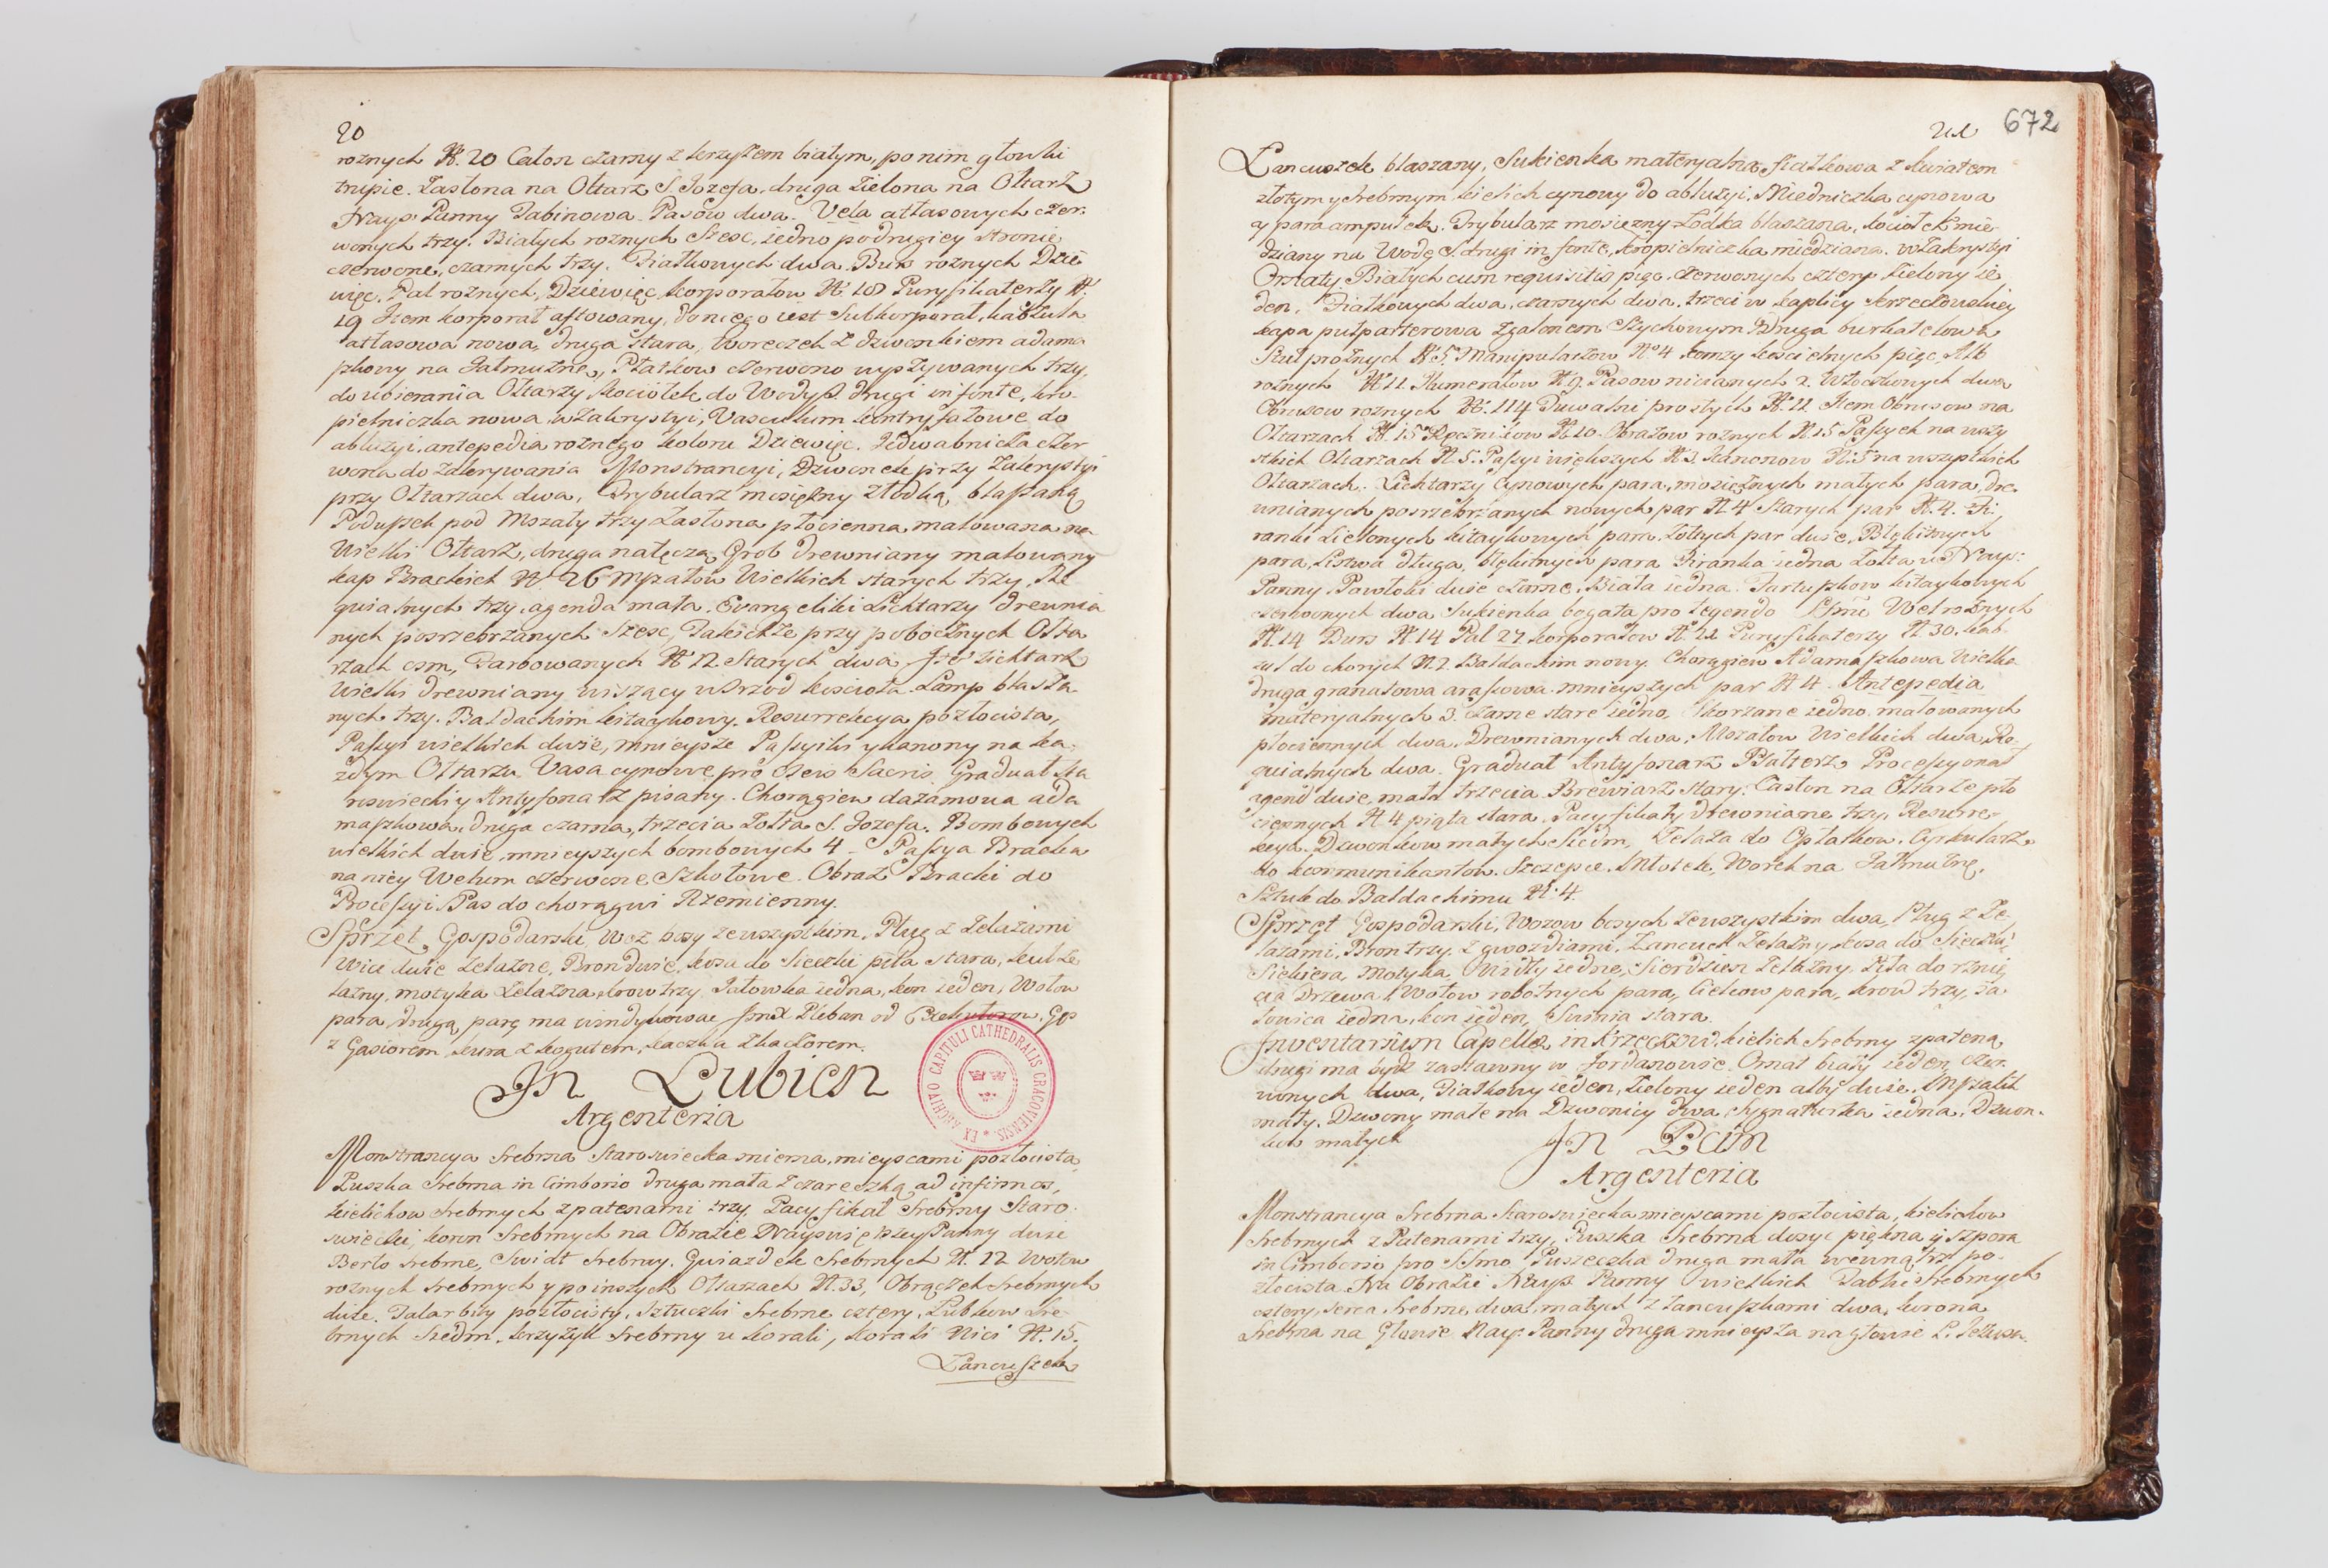 20
roznych N. 20 Całon czarny z krzyżem białym, ponim głowki
trupie. Zasłona na Ołtarz S. Jozefa, druga Zielona na Ołtarz
Nayś: Panny Tabinowa. Pasow dwa. Vela atłasowych czer:
wonych trzy. Białych roznych Szesc, iedno podrugiey stronie
czerwone, czarnych trzy. Fiałkowych dwa. Burs roznych Dzie
więc. Pal roznych, Dziewięc, korporałow N. 18 Puryfikaterzy N.
19 Item korporał aftowany, do niego iest Subkorporał, kabzula
atłasowa nowa, druga stara, Woreczek z dzwonkiem adama
szkowy na Jałmużnę, Płatkow czerwono wyszywanych trzy,
do ubierania Ołtarzy kociołek do Wody S. drugi in fonte, kro:
pielniczka nowa w Zakrystyi, Vasculum kontryfałowe do
abluzyi, antepedia roznego koloru Dziewięc. Jedwabnicka czer
wona do zakrywania Monstrancyi, Dzwonek przy Zakrystyi
przy Ołtarzach dwa, Trybularz mosiężny z łodką blaszaną
Poduszek pod Mszały trzy Zasłona płocienna malowana na
Wielki Ołtarz, druga na tęczą, Grob drewniany malowany
kap Brackich N. 26 Mszałow Wielkich starych trzy, Re
quialnych trzy, agenda mała. Evangeliki Lichtarzy drewnia
nych posrzebrzanych Szesc, Takichze przy pobocznych Ołta
rzach osm, Farbowanych N 12 Starych dwa Jtẽ Lichtarz
wielki drewniany wiszący wsrzod kościoła Lamp blasza
nych trzy. Baldachim kitaykowy. Resurrekcya pozłocista,
Passyi wielkich dwie, mnieysze Passyiki y kanony na ka:
żdym Ołtarzu Vasa cynowe pro Oleis Sacris, Graduał sta
roswiecki y Antyfonarz pisany. Chorągiew dazamowa ada
maszkowa, druga czarna, trzecia Zołta S. Jozefa. Bombowych
wielkich dwie, mnieyszych bombowych 4 – Passya Bracka
na niey Welum czerwone Szkotowe. Obraz Bracki do
Processyi Pas do chorągwi Rzemienny.
Sprzęt Gospodarski, Woz bosy ze wszystkim, Pług z Zelazami
Wici dwie Zelazne, Bron dwie, kosa do Sieczki piła stara, kul Ze
lazny, motyka Zelazna, krow trzy Jałowka iedna, kon ieden, Wołow
para, drugą parę ma windykowac Jmx Pleban od Exekutorow, Gęs
z Gąsiorem, kura z kogutem, kaczka z kaczorem.
In Lubien
Argenteria
Monstrancya Srebrna Staroswiecka mierna, mieyscami pozłocista,
Puszka Srebrna in Cimborio druga mała z czareczką ad infirmos,
kielichow srebrnych z patenami trzy. Pacyfikał Srebrny Staro:
swiecki, koron Srebrnych na Obrazie Nayswięszey Panny dwie
Berło srebrne, Swidł srebrny. Gwiazdek Srebrnych N. 12 Wotow
roznych srebrnych y po inszych Ołtarzach N. 33, Obrączek Srebrnych
dwie. Talar bity pozłocisty, Sztuczki Srebrne cztery, Lubkow sre
brnych Siedm, krzyżyk Srebrny u korali, korali Nici N. 15.
Łancuszek
EX ARCHIVO CAPITULI CATHEDRALIS CRACOVIENSIS
21
672
Łancuszek blaszany, Sukienka materyalna fiałkowa z kwiatem
złotym y srebrnym kielich cynowy do abluzyi, Miedniczka cynowa
y para ampułek, Trybularz mosiężny Łodka blaszana, kociołek mie
dziany na Wodę S. drugi in fonte, kropielniczka miedziana w Zakrystyi
Ornaty Białych cum requisitis pięc, czerwonych cztery Zielony ie
den, Fiałkowych dwa, czarnych dwa, trzeci w kaplicy krzeczowskiey
kapa pułparterowa z galonem Szychowym Druga burkatelowa
Stuł proznych N. 5 Manipularzow No 4 komzy koscielnych pięc, Alb
roznych N. 11 Humerałow N. 9. Pasow nicianych 2. Włoczkowych dwa
Obrusow roznych N. 114 Tuwalni prostych N. 11 Item Obrusow na
Ołtarzach N. 15 Ręcznikow N. 10. Obrazow roznych N. 15 Passyek na wszy
stkich Ołtarzach N. 5. Passyi większych N. 3. kanonow N. 5 na wszystkich
Ołtarzach. Lichtarzy Cynowych para, mosiężnych małych para, dre.
wnianych posrzebrzanych nowych par N. 4 Starych par N. 4. Fi:
ranki Zielonych kitaykowych para, Zołtych par dwie, Błękitnych
para, Listwa długa, błękitnych para Firanka iedna Zołta u Nays:
Panny Pawłoki dwie czarne, Biała iedna. Fartuszkow kitaykowych
czerwonych dwa, Sukienka bogata pro tegendo Ssmo Wel roznych
N. 14 Burs N. 14 Pal 27 korporałow N. 22 Puryfikaterzy N. 30. kab-
zul do chorych N. 2. Baldachim nowy. Chorągiew Adamaszkowa Wielka
druga granatowa arasowa, mnieyszych par N 4. Antepedia
materyalnych 3. czarne stare iedno, Skorzane iedno malowanych
płociennych dwa, Drewnianych dwa, Mszałow Wielkich dwa, Re-
quialnych dwa. Graduał Antyfonarz Psałterz Processyonał
agend dwie, mała trzecia Brewiarz stary. Zasłon na Ołtarze pło
ciennych N 4 piąta stara. Pacyfikały drewniane trzy, Resurre-
kcya. Dzwonkow małych Siedm, Zelaza do Opłatkow. Cyrkularz
ko komunikantow. Szczepce, Młotek, Worek na Jałmużnę.
Sztuk do Baldachimu N. 4.
Sprzęt Gospodarski, Wozow bosych ze wszystkim dwa, Pług z Ze-
lazami, Bron trzy, z gwozdziami, Łancuch Zelazny, kosa do Sieczki,
Siekiera, Motyka, Widły iedne, Sierdzien Zelazny Piła do rznię
cia Drzewa, Wołow robotnych para, Cielcow para, krow trzy, Ja
łowica iedna, kon ieden, Swinia stara.
Inventarium Capellæ in Krzeczow, kielich Srebrny z pateną
drugi ma bydz zastawny w Jordanowie. Ornat biały ieden, czer.
wonych dwa, Fiałkowy ieden, Zielony ieden alby dwie. Mszalik
mały. Dzwony małe na Dzwonicy dwa, sygnaturka iedna, Dzwon-
kow małych
In Pcim
Argenteria
Monstrancya Srebrna Staroswiecka mieyscami pozłocista, kielichow
Srebrnych z Patenami trzy, Puszka Srebrna dosyc piękna y Spora
in Cimborio pro SSmo Puszeczka druga mała wewnątrz po-
złocista. Na Obrazie Nays. Panny wielkich Tablic Srebrnych
cztery, Serca srebrne, dwa, małych z Łancuszkami dwa, korona
Srebrna na Głowie Nays: Panny druga mnieysza na głowie P. Jezusa.